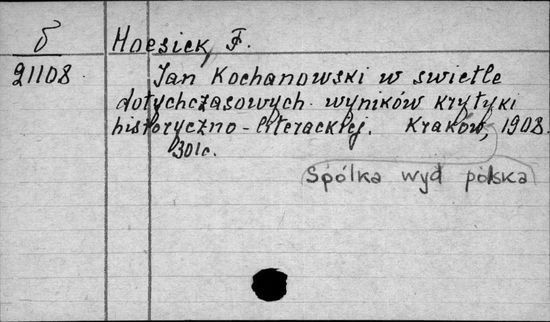 б Hoesick, F.
21108 Jan Kochanowski w swietle
dotychczasowych wyników krytyki
historyczno-literackiej. Kraków, 1908.
301c.
Spólka wyd polska